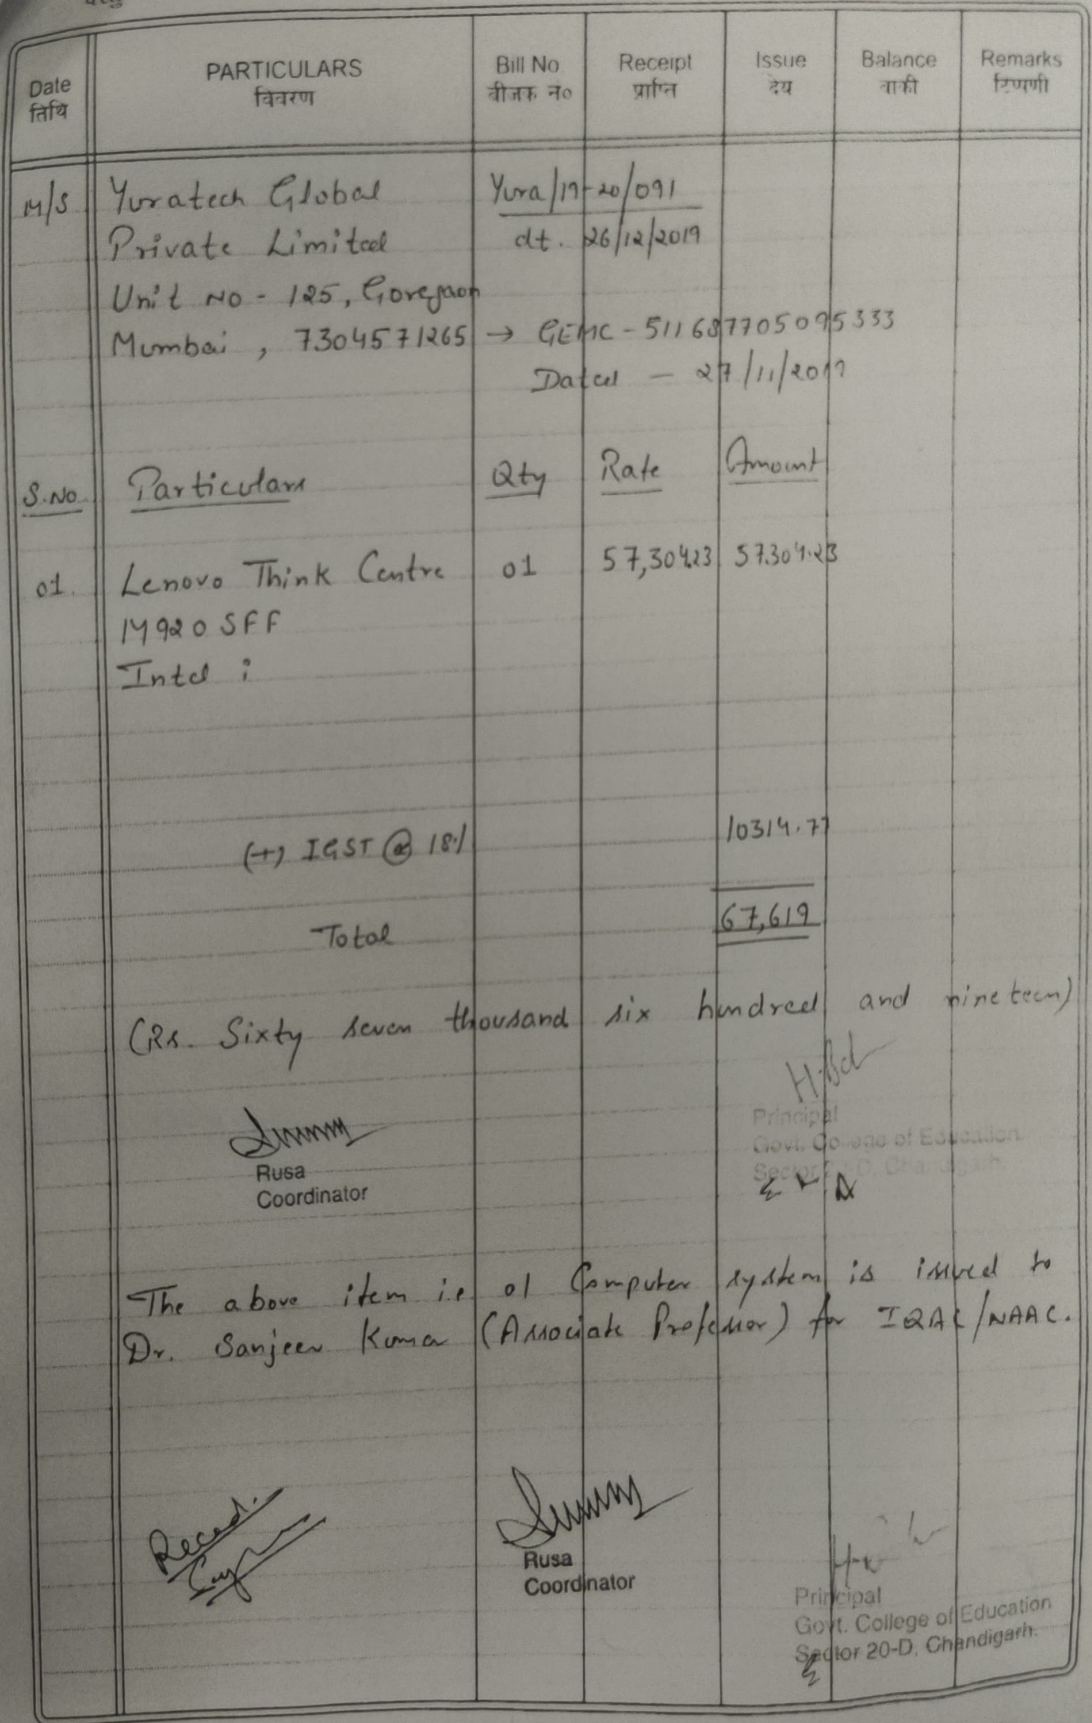 Date PARTICULARS Bill No Receipt Issue Balance Remarks
तिथि विवरण बीजक न० प्राप्ति देय बाकी टिप्पणी
M/S Yuratech Global Yura/19-20/091
Private Limited dt. 26/12/2019
Unit No - 125, Goregaon
Mumbai, 7304571265 → GEMC - 511687705095333
Dated - 27/11/2019
S.No. Particulars Qty Rate Amount
01. Lenovo Think Centre 01 57,304.23 57304.23
M920 SFF
Intel i
(+) IGST @ 18% 10314.77
Total 67,619
(Rs. Sixty seven thousand six hundred and nineteen)
Rusa
Coordinator
Principal
Govt. College of Education
Sector 20-D, Chandigarh.
The above item i.e 01 Computer system is issued to
Dr. Sanjeev Kumar (Associate Professor) for IQAC/NAAC.
Recd.
Rusa
Coordinator
Principal
Govt. College of Education
Sector 20-D, Chandigarh.